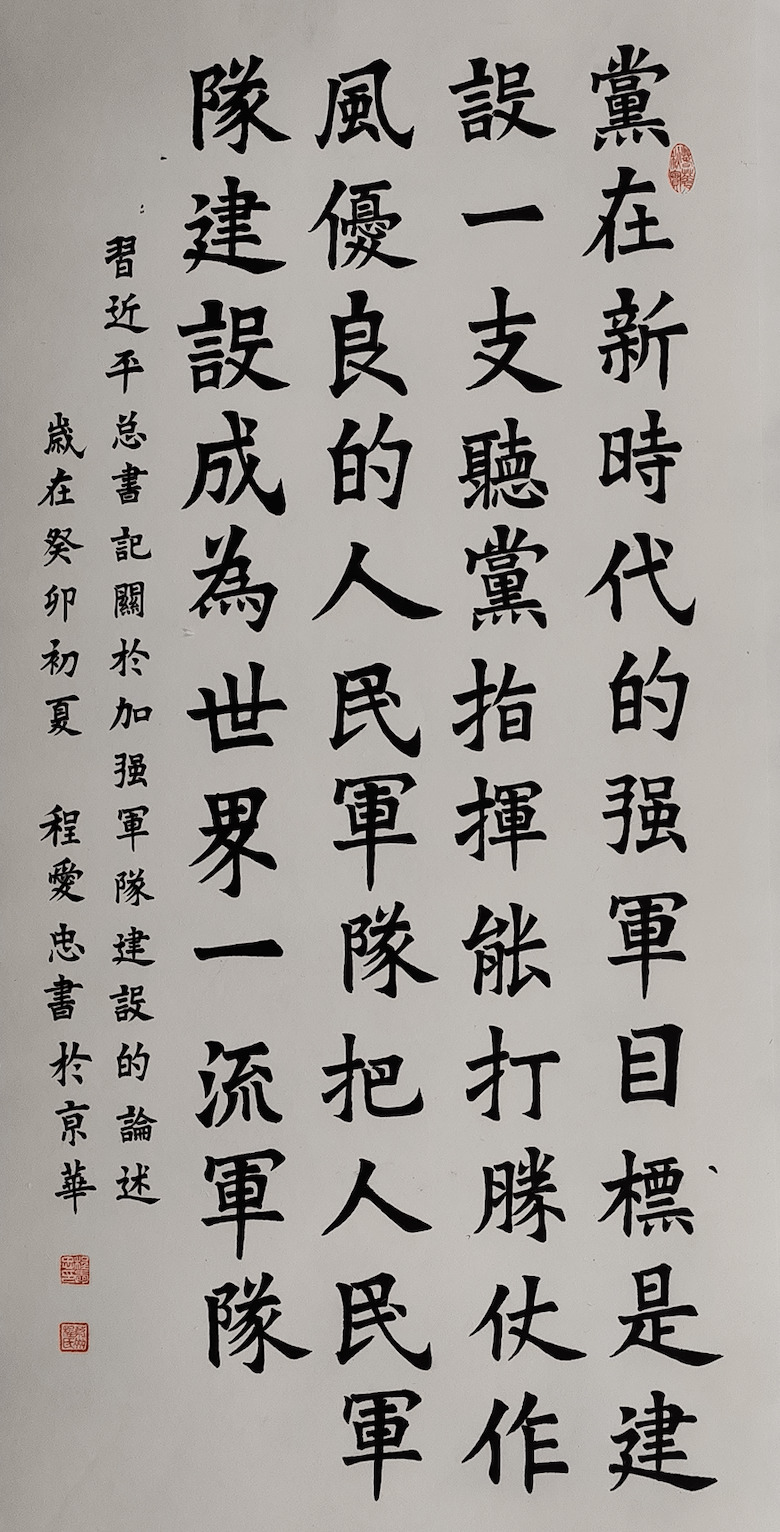 黨在新時代的强軍目標是建
設一支聽黨指揮能打勝仗作
風優良的人民軍隊把人民軍
隊建設成為世界一流軍隊
習近平总書記關於加强軍隊建設的論述
歲在癸卯初夏 程愛忠書於京華